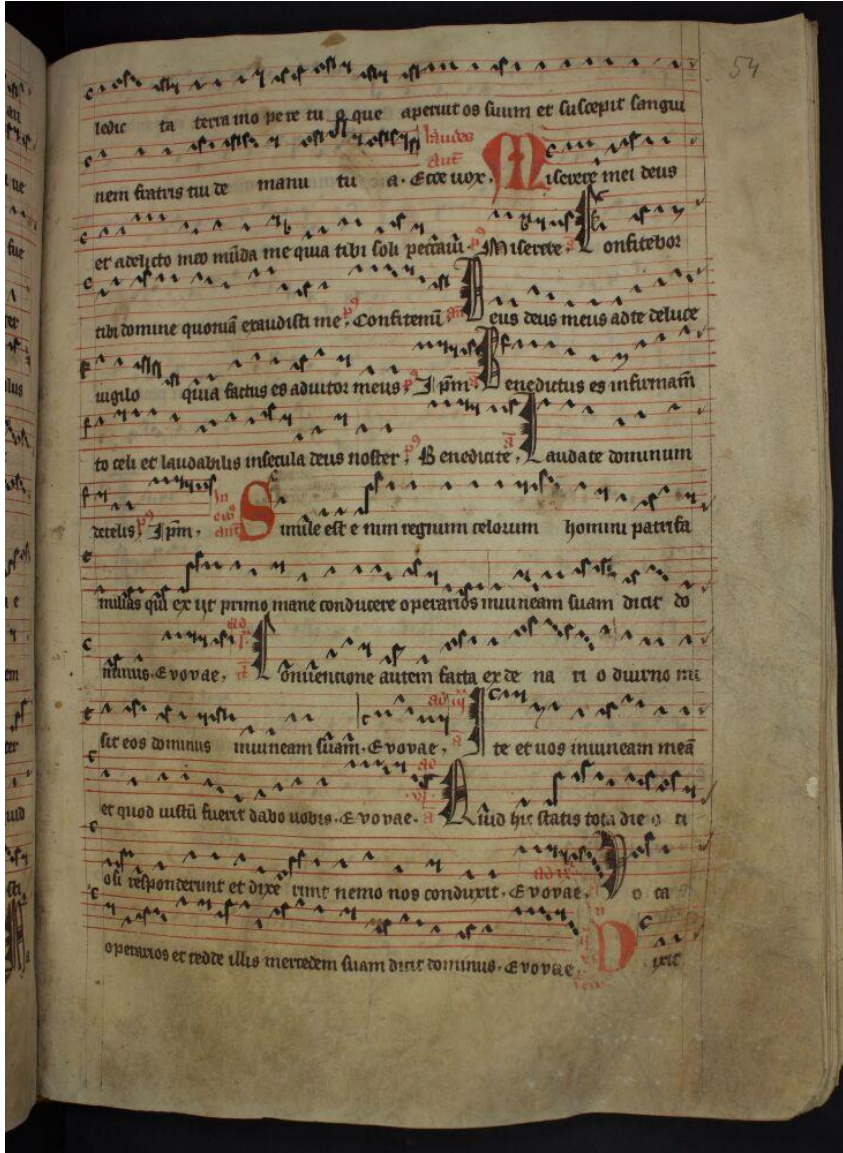 54
ledic ta terra in o pe re tu o que aperuit os suum et suscepit sangui
nem fratris tui de manu tu a. Ecce uox. laudes añt Miserere mei deus
et a delicto meo mūda me quia tibi soli peccaui. ps Miserere. a Confitebor
tibi domine quoniā exaudisti me. ps Confitemī. añ Deus deus meus ad te de luce
uigilo quia factus es adiutor meus. ps Ipm. a Benedictus es in firmam̄
to celi et laudabilis in secula deus noster. ps Benedicite. a Laudate dominum
de celis. ps Ipm. In eū añt Simile est e nim regnum celorum homini patrifa
milias qui ex iit primo mane conducere operarios in uineam suam dicit do
minus. Evovae. ad j. a Conuentione autem facta ex de na ri o diurno mi
sit eos dominus in uineam suam. Evovae. ad iij a Ite et uos in uineam meā
et quod iustū fuerit dabo uobis. Evovae. ad vj. a Quid hic statis tota die o ti
osi responderunt et dixe runt nemo nos conduxit. Evovae. ad ix a Vo ca
operarios et redde illis mercedem suam dicit dominus. Evovae. Dixit